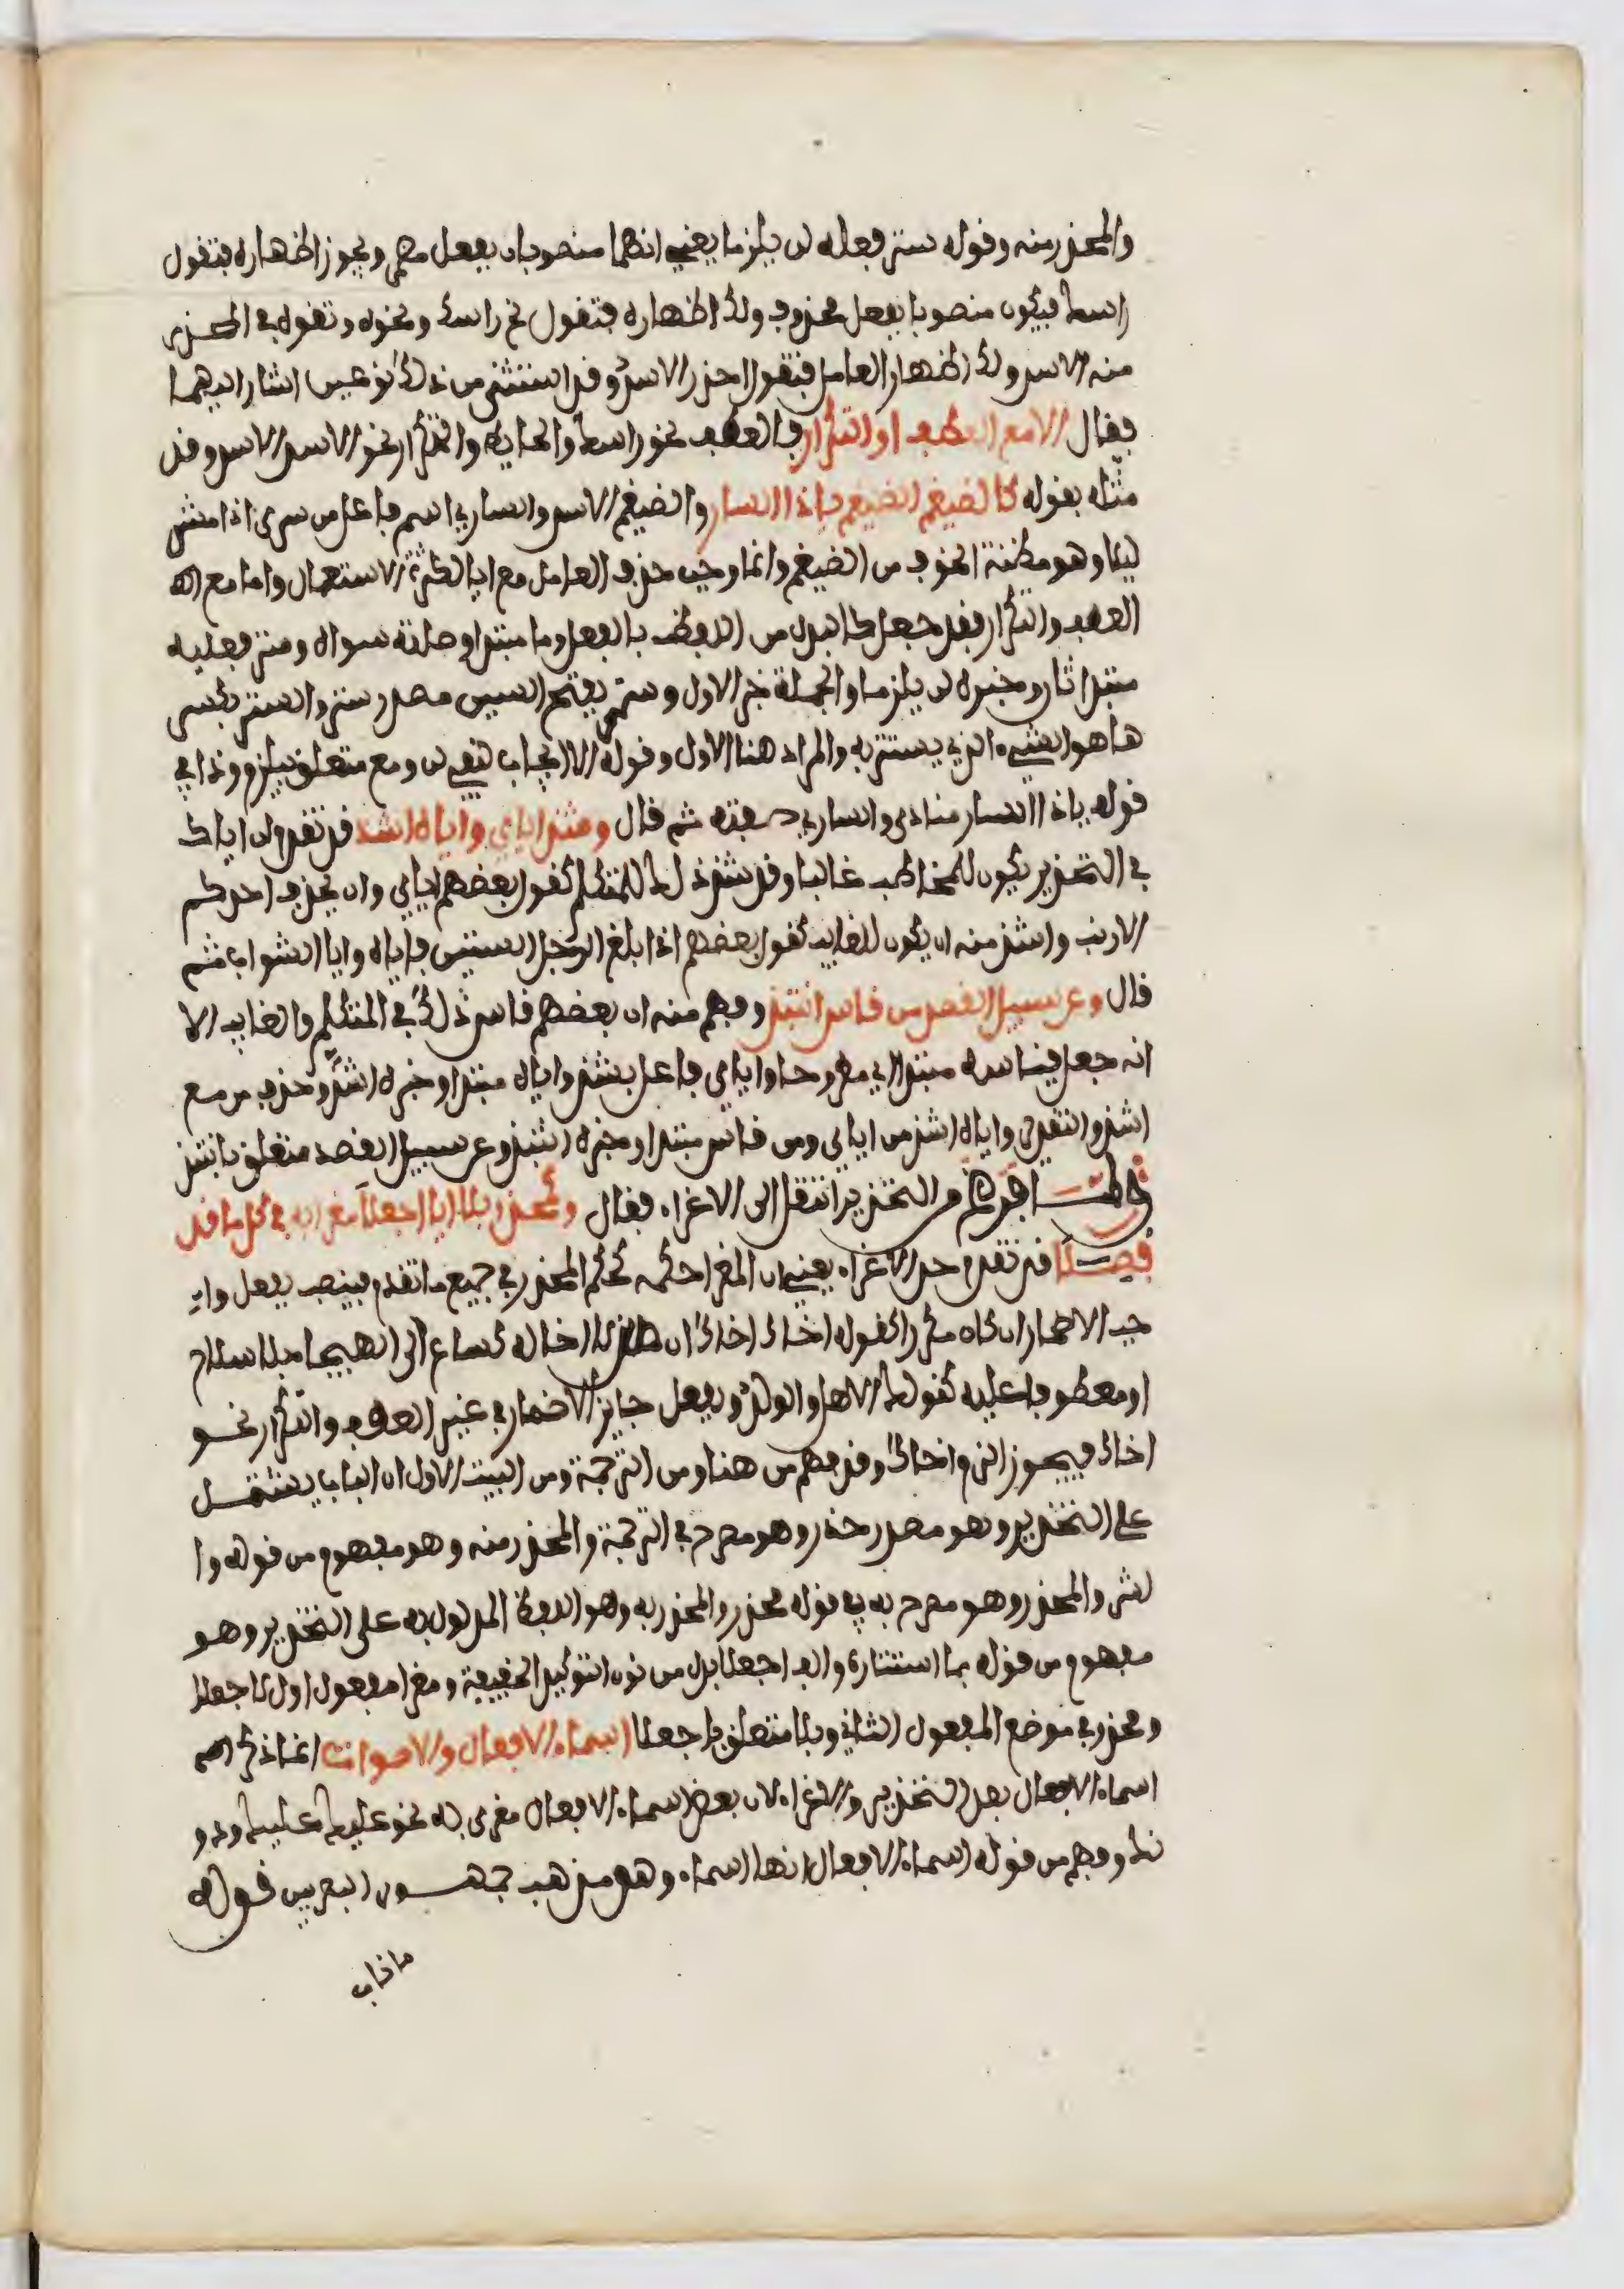 والمحذر منه وقوله ستر فعله لن يلزما يعني انهما منصوبان بفعل مضمر ويجوز اظهاره فتقول
راسك فيكون منصوبا بفعل محذوف ولك اظهاره فتقول نح راسك ونحوه وتقوله في المحذر
منه الاسد ولك اظهار العامل فتقول احذر الاسد وقد استثنى من ذلك نوعين اشار اليهما
بقال الا مع العطف او التكرار فالعطف نحو راسك والحايط والتكرار نحو الاسد الاسد وقد
مثله بقوله كالضيغم الضيغم ياذا السار والضيغم الاسد والساري اسم فاعل من سرى اذا مشى
ليلا وهو مظنة الخوف من الضيغم وانما وجب حذف العامل مع ايا لكثرة الاستعمال واما مع
العطف والتكرار فقد جعل كالبدل من اللفظ بالفعل وما مبتدا وصلته سواه وستر فعليه
مبتدا ثان وخبره لن يلزما والجملة خبر الاول وستر بفتح السين مصدر ستر والستر بكسر
ها هو الشيء الذي يستتر به والمراد هنا الاول وقوله الا ايجاب لنفي لن ومع متعلق بيلزم وذا في
قوله ياذا السار منادى والساري صفته ثم قال وشذ اياي واياه اشذ قد تقدم ان اياك
في التحذير يكون للمخاطب غالبا وقد شذ ذلك للمتكلم كقول بعضهم اياي وان يحذف احدكم
الارنب واشذ منه ان يكون للغايب كقول بعضهم اذا بلغ الرجل الستين فاياه وايا الشواب ثم
قال وعن سبيل القصد من قاس انتبذ وفهم منه ان بعضهم قاس ذلك في المتكلم والغايب الا
انه جعل قياسه مبتذلا اي مطروحا واياي فاعل بشذ واياه مبتدا وخبره اشذ وحذف من مع
اشذ والتقدير واياه اشذ من اياي ومن قاس مبتدا وخبره انتبذ وعن سبيل القصد متعلق بانتبذ
ولما فرغ من التحذير انتقل الى الاغراء فقال وكمحذر بلا ايا اجعلا مغرى به في كل ما قد
فصلا قد تقدم حد الاغراء يعني ان المغرا حكمه كحكم المحذر في جميع ما تقدم فينصب بفعل وا
جب الاضمار ان كان مكررا كقوله اخاك اخاك ان من لا اخا له كساع الى الهيجا بلا سلاح
او معطوفا عليه كقولك الاهل والولد وبفعل جايز الاضمار في غير العطف والتكرار نحو
اخاك فيجوز الزم اخاك وقد فهم من هنا ومن الترجمة ومن البيت الاول ان الباب يشتمل
على التحذير وهو مصدر حذر وهو مصرح في الترجمة والمحذر منه وهو مفهوم من قوله وا
لشر والمحذر وهو مصرح به في قوله محذر والمحذر به وهو اللفظ المدلول به على التحذير وهو
مفهوم من قوله بما استتاره والف اجعلا بدل من نون التوكيد الخفيفة ومغرا مفعول اول لاجعلا
ومحذر في موضع المفعول الثاني وبلا متعلق باجعلا اسماء الافعال والاصوات انما ذكر
اسماء الافعال بعد التحذير والاغراء لان بعض اسماء الافعال مغرى به نحو عليك عليك ودو
نك وفهم من قوله اسماء الافعال انها اسماء وهو مذهب جمهور البصريين قوله
ما ناب